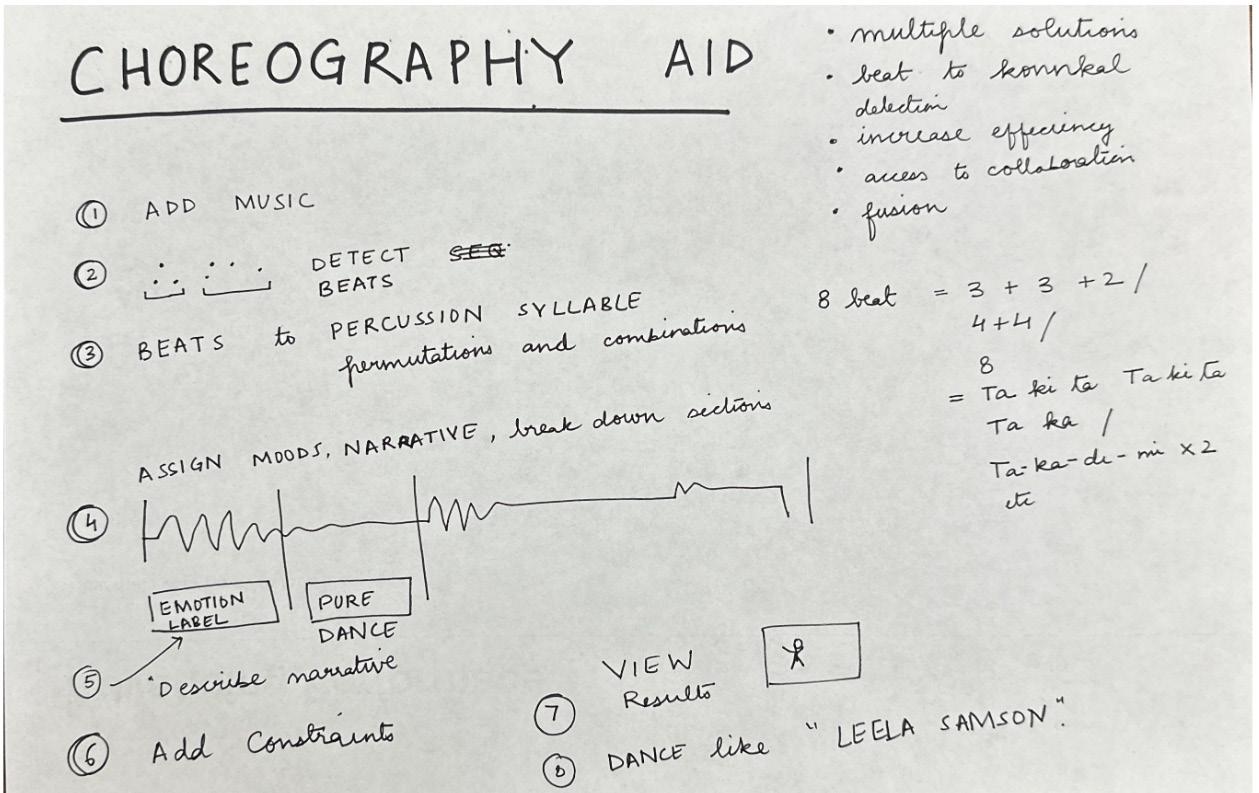 CHOREOGRAPHY AID
• multiple solutions
• beat to konnkal
detection
• increase effeciency
• access to collaboration
• fusion
① ADD MUSIC
② DETECT
BEATS
③ BEATS to PERCUSSION SYLLABLE
permutations and combinations
8 beat = 3 + 3 + 2 /
4+4 /
8
= Ta ki ta Ta ki ta
Ta ka /
Ta-ka-di-mi x2
etc
ASSIGN MOODS, NARRATIVE, break down sections
④
EMOTION
LABEL
PURE
DANCE
⑤ Describe narrative
⑥ Add Constraints
⑦ VIEW
Results
⑧ DANCE like "LEELA SAMSON".